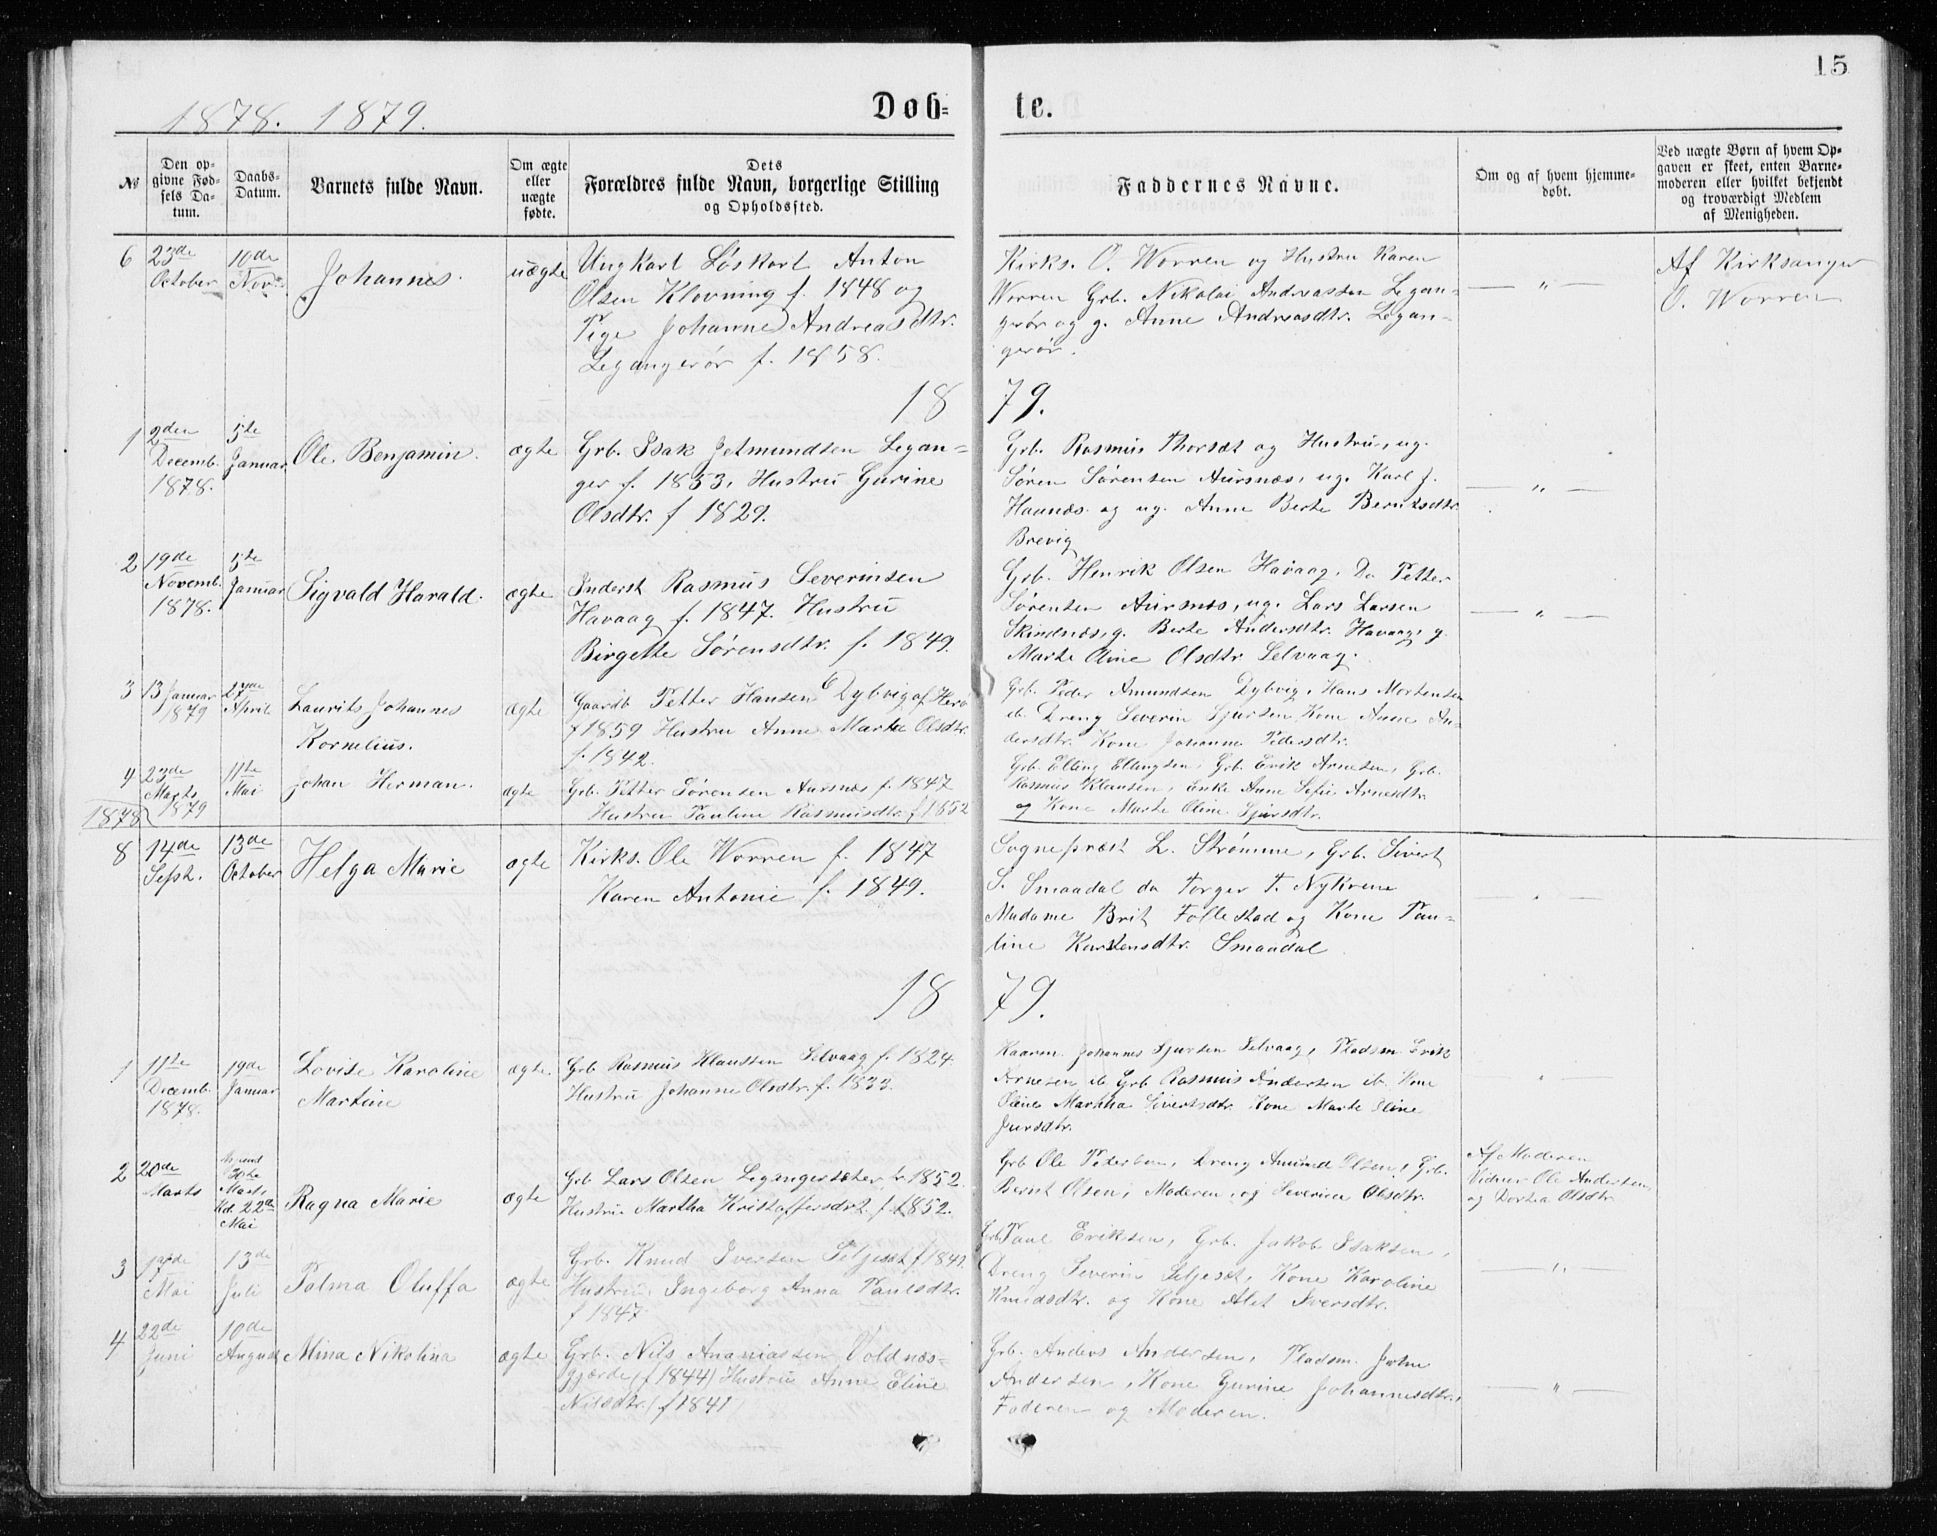 15
1878. 1879.
Døb=
te.
№
Den op=
givne Fød=
sels Da=
tum.
Daabs=
Datum.
Barnets fulde Navn.
Om ægte
eller
uægte
fødte.
Dets
Forældres fulde Navn, borgerlige Stilling
og Opholdssted.
Faddernes Navne.
Om og af hvem hjemme=
døbt.
Ved uægte Børn af hvem Op=
gaven er skeet, enten Barne=
moderen eller hvilket bekjendt
og troværdigt Medlem
af Menigheden.
6
23de
October
10de
Nov.
Johannes.
uægte
Ungkarl Løskarl Anton
Olsen Klovning f. 1848 og
Pige Johanne Andreasdtr.
Legangerør f. 1858.
Kirks. O. Worren og Hustru Karen
Worren Grb. Nikolai Andreassen Legan=
gerør og g. Anne Andreasdtr. Legan=
gerør.
— " —
Af Kirksanger
O. Worren
18 79.
1
2den
Decemb.
1878.
5te
Januar
Ole Benjamin.
ægte
Grb. Isak Jetmundsen Legan=
ger f. 1833, Hustru Gurine
Olsdtr. f 1829.
Grb. Rasmus Thorsæt og Hustru, ug.
Søren Sørensen Aursnæs, ug. Karl J.
Haanæs og ug. Anne Berte Berntsdtr
Brevig
— " —
2
19de
Novemb.
1878.
5te
Januar
Sigvald Harald.
ægte
Inderst Rasmus Severinsen
Havaag f. 1847. Hustru
Birgette Sørensdtr. f. 1849.
Grb. Henrik Olsen Havaag, Do Petter
Sørensen Aursnes, ug. Lars Larsen
Skindnæs, g. Berte Andersdtr. Havaag, g.
Marte Oline Olsdtr Selvaag.
— " —
3
13 Januar
1879
27de
April
Laurits Johannes
Kornelius.
ægte
Gaardb Petter Hansen Dybvig af Herø
f 1859 Hustru Anne Marta Olsdtr.
f. 1842.
Grb. Peder Amundsen Dybvig, Hans Mortensen
ib. Dreng Severin Sjursen, Kone Anne An=
dersdtr. Kone Johanne Pedersdtr.
4
23de
Marts
1879
11te
Mai
Johan Herman.
ægte
Grb. Petter Sørensen Aursnæs f. 1847
Hustru Pauline Rasmusdtr. f 1852
Grb. Elling Ellingsen, Grb. Erik Arnesen, Grb.
Rasmus Klausen, Enke Anne Sofie Arnesdtr.
og Kone Marte Oline Sjursdtr.
1878
8
14de
Sept.
13de
October
Helga Marie
ægte
Kirks. Ole Worren f. 1847
Karen Antonie f. 1849.
Sognepræst L. Strømme, Grb. Sivert
S. Smaadal do Torger T. Nykrene
Madame Brit Follestad og Kone Pau=
line Karstensdtr. Smaadal
— " —
18 79.
1
11te
Decemb.
1878.
19de
Januar
Lovise Karoline
Martine
ægte.
Grb Rasmus Klaussen Selvaag f. 1824
Hustru Johanne Olsdtr. f. 1833.
Kaarm. Johannes Sjursen Selvaag, Pladsm. Erik
Arnesen ib. Grb Rasmus Andersen ib. Kone
Oline Martha Sivertsdtr. Kone Marte Oline
Jursdtr.
— " —
2
20de
Marts
30te
Marts
22de
Mai
Ragna Marie
ægte
Grb Lars Olsen Legangersæter f. 1852.
Hustru Martha Kristoffersdtr f. 1852.
Grb Ole Pedersen, Dreng Amund Olsen, Grb.
Bernt Olsen, Moderen, og Severine Olsdtr.
Af Moderen
Vidner Ole Andersen
og Dortea Olsdtr
3
17de
Mai
13de
Juli
Palma Oluffa
ægte
Grb. Knud Iversen Seljesæt f 1849.
Hustru Ingeborg Anna Paulsdtr.
f 1847
Grb Paul Eriksen, Grb. Jakob Isaksen,
Dreng Severin Seljeset, Kone Karoline
Knudsdtr. og Kone Alet Iversdtr.
— " —
4
22de
Juni
10de
August
Mina Nikolina
ægte
Grb. Nils Ananiassen Voldnæs=
gjærde (f 1844) Hustru Anne Eline
Nilsdtr. (f 1841)
Grb. Anders Andersen, Pladsm. John
Andersen, Kone Gurine Johannesdtr.,
Faderen og Moderen.
— " —